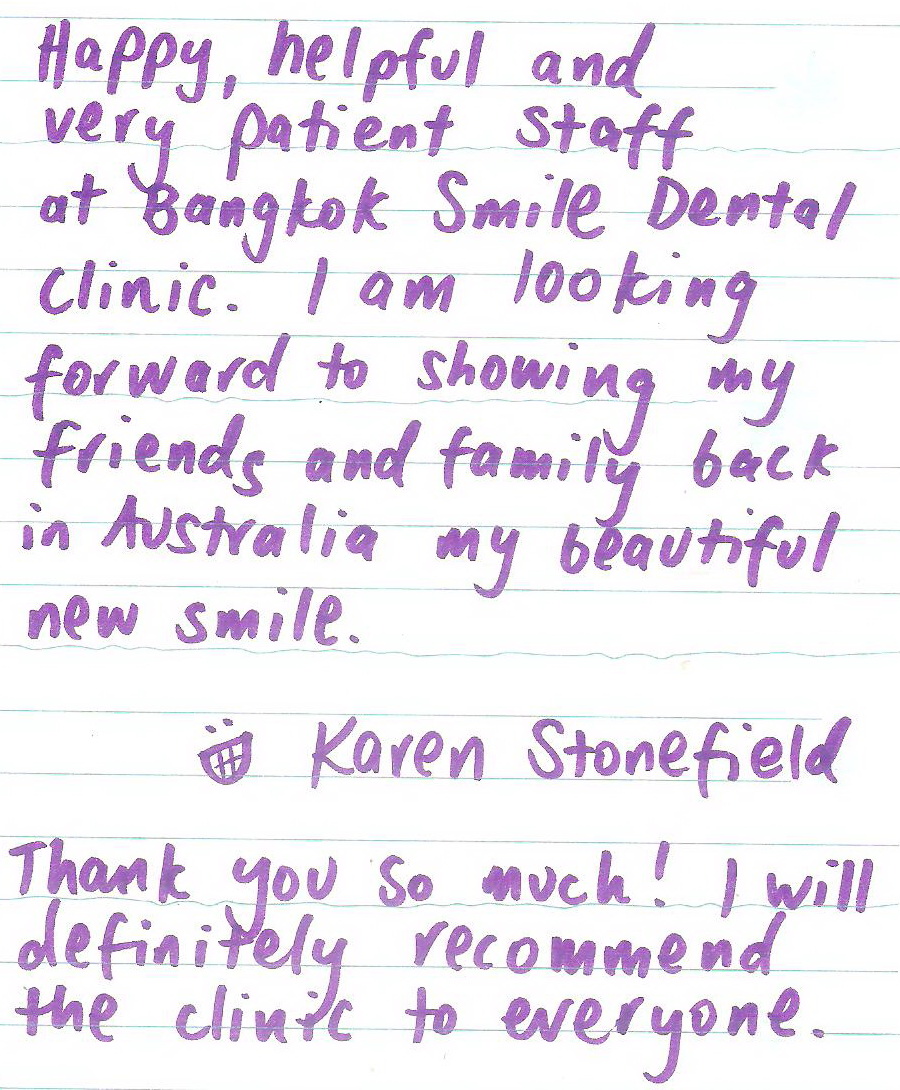 Happy, helpful and
very patient staff
at Bangkok Smile Dental
clinic. I am looking
forward to showing my
friends and family back
in Australia my beautiful
new smile.
Karen Stonefield
Thank you so much! I will
definitely recommend
the clinic to everyone.